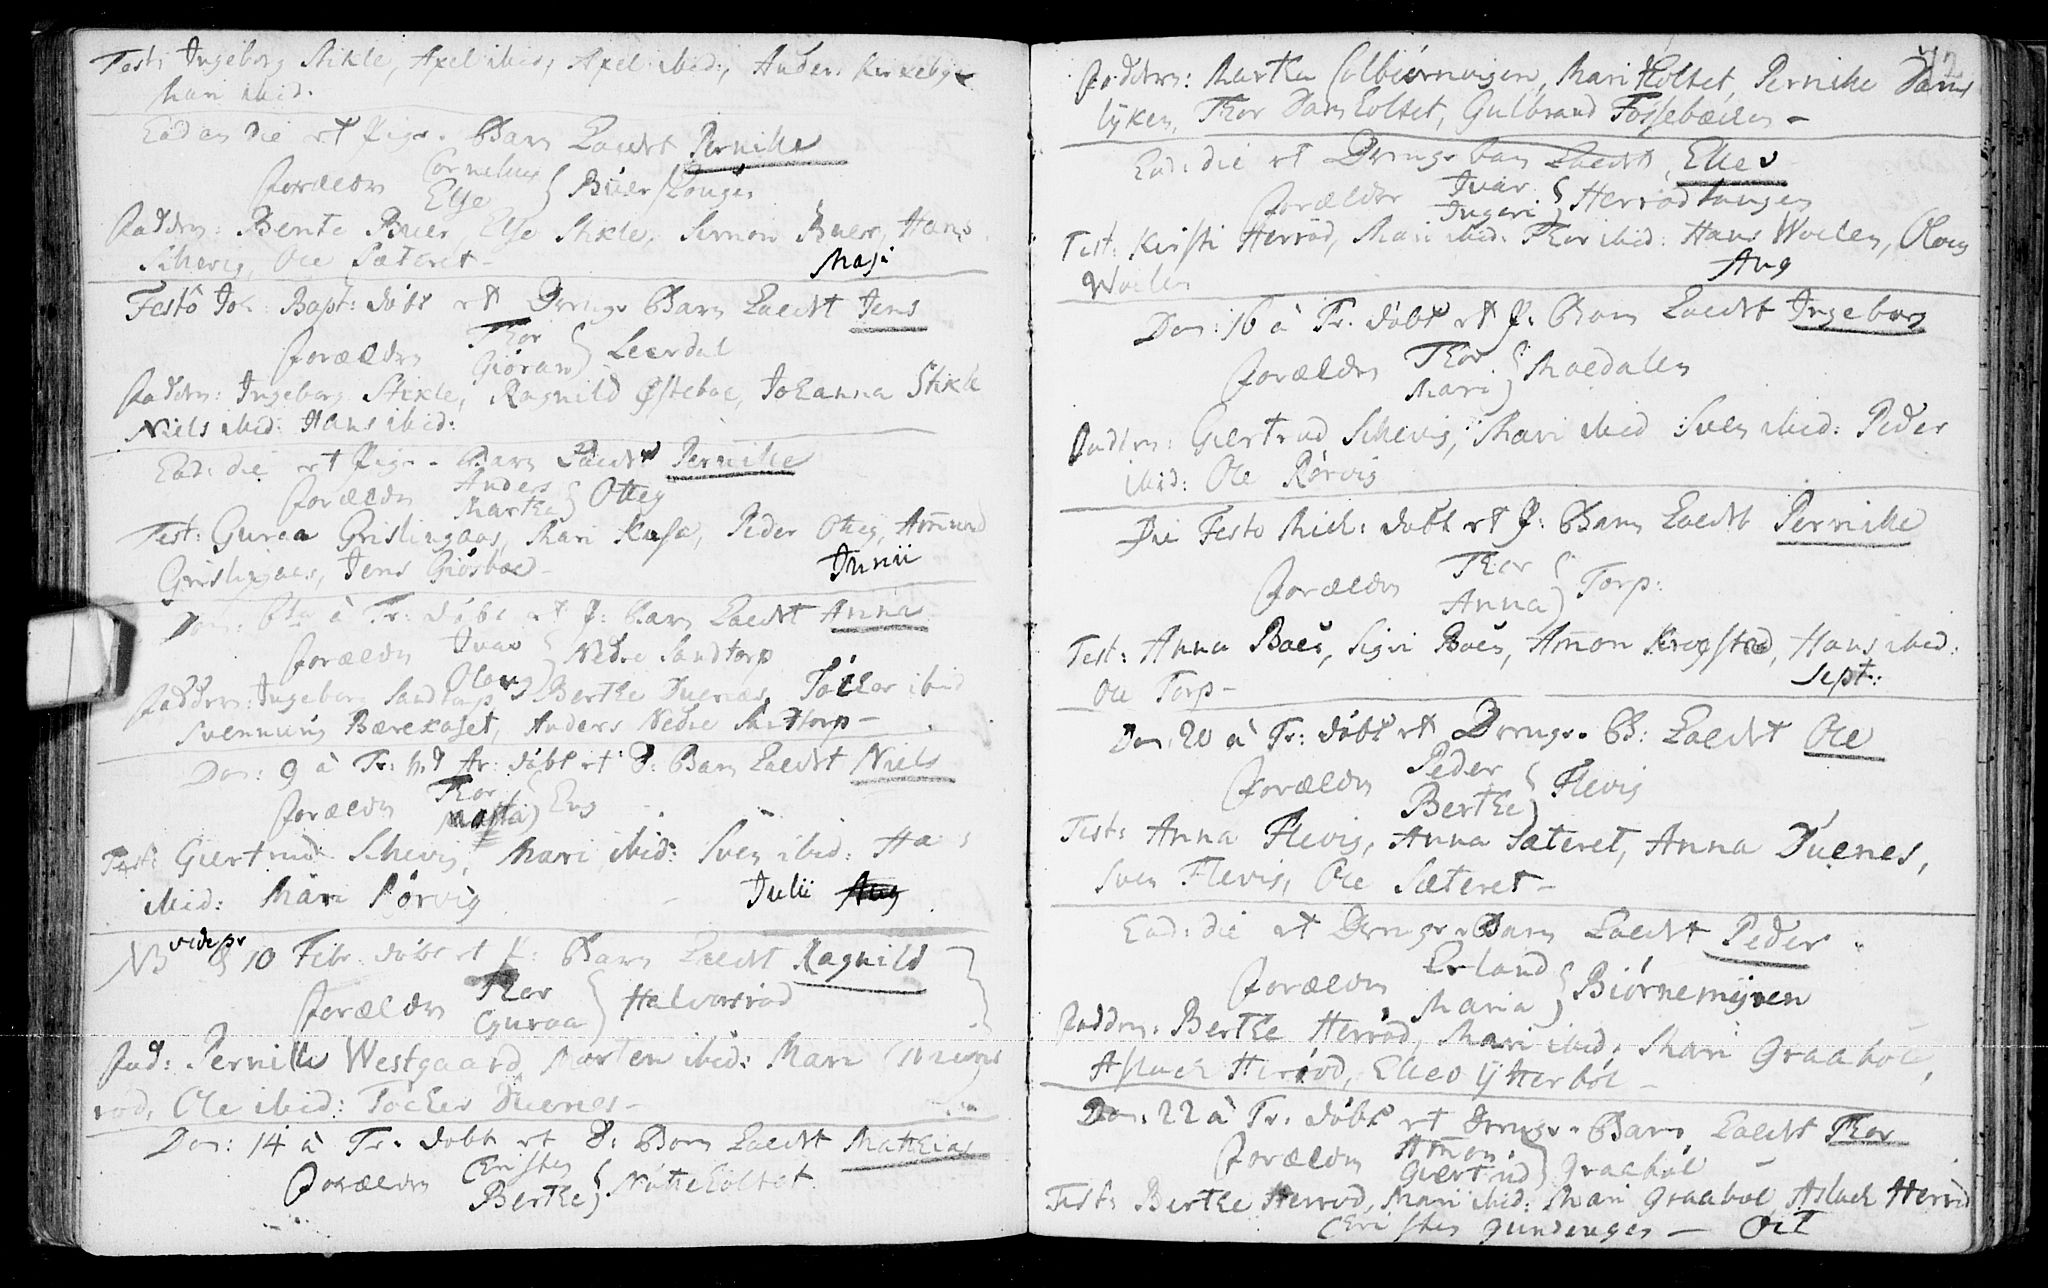 Test: Ingeborg Stikle, Axel ibid; Axel ibid:, Anders Kirkebye
Mari ibid.
Ead en die et Pige-Barn kaldet Pernille
forældre Cornelius
Else } Buer
Faddere: Bente Buer, Else Stikle, Simon Buer, Hans
Schevig, Ole Sæteret- Maji
Festo Joh: Bapt: døbt et Drenge Barn kaldet Jens
forældre Thor
Giøran } Leerdal
Faddere: Ingeborg Stikle, Ragnild Østeboe, Johanna Stikle
Niels ibid: Hans ibid:
Ead: die et Pige-Barn kaldet Pernille
forældre Anders
Marthe } Otteg
Test: Guroa Grislingaas, Mari Kasa, Peder Otteg, Amund
Grislingaas, Jens Giøsboe- Junii
Dom: 6ta à Tr: døbt et P: Barn kaldet Anna
forældre Ivar
Olaug } Nedre Sandtorp
Faddere: Ingeborg Sandtorp, Berthe Duenæs, Tocker ibid
Svennung Bærekaset, Anders Nedre Sandtorp-
Dom: 9 à Tr: døbt et D: Barn kaldet Niels
forældre Thor
Eng
Test: Giertrud Schevig, Mari ibid: Sven ibid: Hans
ibid: Mari Rørvig Julii Aug
NB vide pr 10 Febr døbt et P: Barn kaldet Ragnild
forældre Thor
Guroa } Halvorsrød
Fad: Pernille Westgaard, Morten ibid: Mari
rød, Ole ibid: Tocker Duenes-
Dom: 14 à Tr. døbt et D: Barn kaldet Mathias
forældre Christen
Berthe } Nøtteholtet
Faddere: Marthe Colbiørnvigen, Mari Holtet, Pernille Dams
lyken, Thor Damholtet, Gulbrand Fossebæcken-
Ead: die et Drenge barn kaldet Ellev
forælder Ivar
Ingeri } Herrødtangen
Test: Kirsti Herrød, Mari ibid: Thor ibid: Hans Woclen, Oloug
Woclen Aug
Dom: 16 à Tr. døbt et P: Barn kaldet Ingeborg
forældre Thor
Mari } Moedalen
Faddere: Giertrud Schevig, Mari ibid Sven ibid: Peder
ibid: Ole Rørvig
Die Festo Mich: døbt et P: Barn kaldet Pernille
forældre Thor
Anna } Torp:
Test: Anna Boes, Sigri Boes, Amon Krogstad, Hans ibid:
Ole Torp- Sept:
Dom. 20 à Tr: døbt et Drenge B: kaldet Ole
forældre Peder
Berthe } Flevig
Test: Anna Flevig, Anna Sæteret, Anna Duenes,
Sven Flevig, Ole Sæteret-
Ead: die et Drenge Barn kaldet Peder
forældre Erland
Maria } Biørnemyren
Faddere: Berthe Herrød, Mari ibid: Mari Graaboe,
Aslach Herrød, Ellev Ytterböe-
Dom: 22 à Tr: døbt et Drenge-Barn kaldet Thor
forældre Amon
Giertrud } Graaböe
Test: Berthe Herrød, Mari ibid: Mari Graaboe, Aslach Herrød
Christen Gundenges- Oct